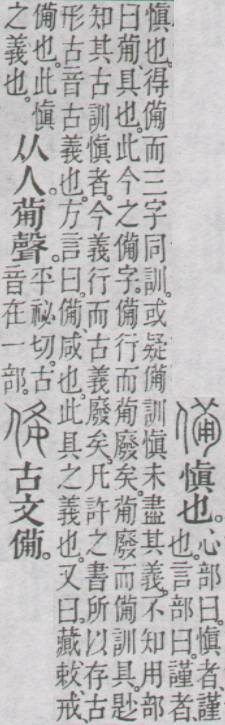 愼也。心部曰。愼者、謹
也。言部曰。謹者、
愼也。得備而三字同訓。或疑備訓愼未盡其義。不知用部
曰。葡、具也。此今之備字。備行而葡廢矣。葡廢而備訓具。尟
知其古訓愼者。今義行而古義廢矣。凡許之書所以存古
形古音古義也。方言曰。備、咸也。此具之義也。又曰。藏、敕、戒、
備也。此愼
之義也。
从人。葡聲。
平祕切。古
音在一部。
古文備。